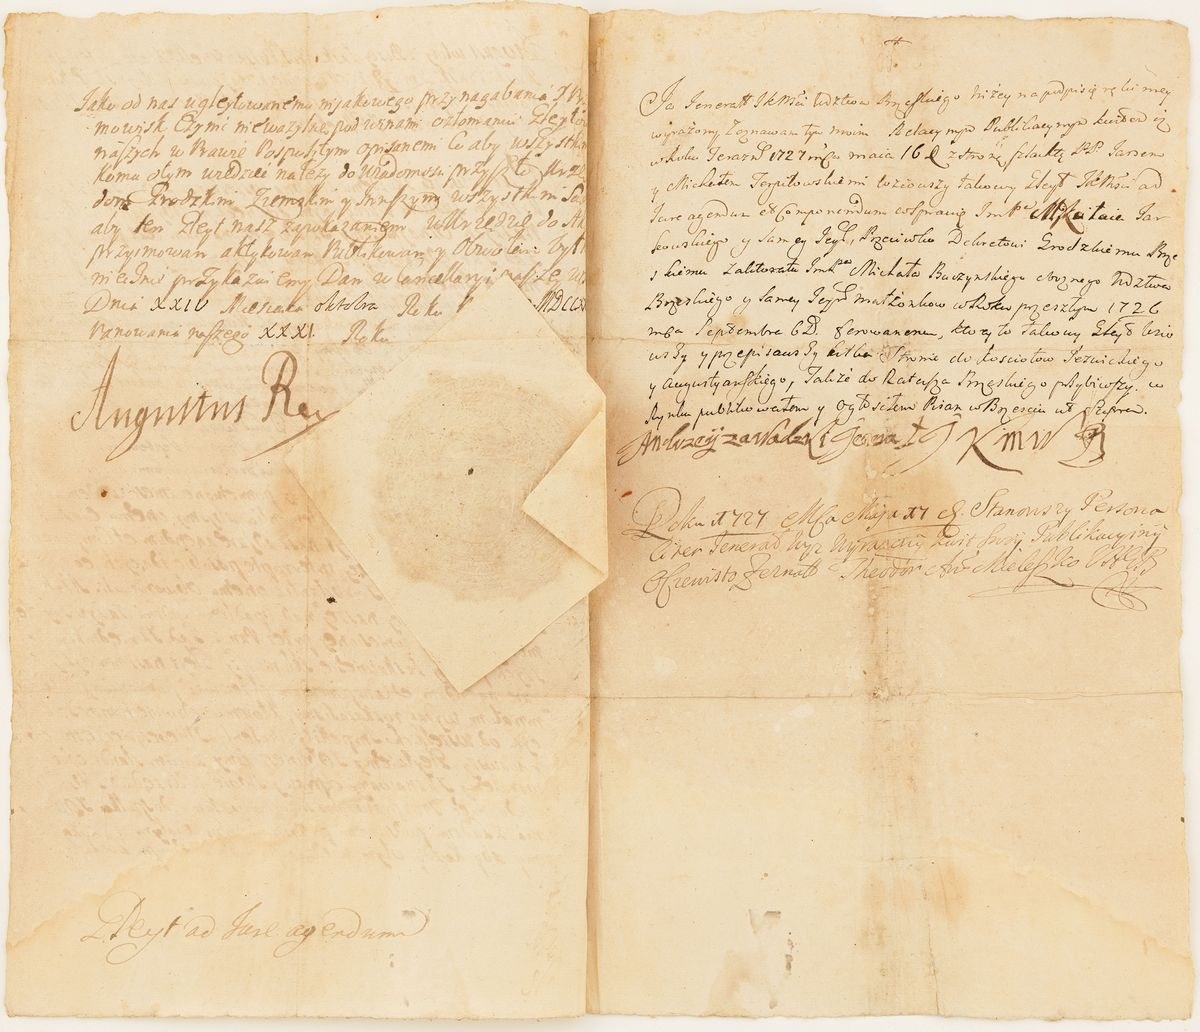 Jako od nas ugleytowanemu nijakowego przynagabania y
mowisk czynić nieważyli pod winami o złamaniu Gleytow
naszych w Prawie Pospolitym opisanemi co aby wszystkim
komu o tym wiedzieć należy do wiadomości przyszło
dom Grodzkim Ziemskim y Innszym wszystkim
aby ten Gleyt nasz za pokazaniem w Urzędzie do
przyimowan aktykowan Publikowan y Obwołan był
mieć przykazuiemy Dan w Cancellaryi naszey
Dnia XXIV Miesiąca oktobra Roku MDCCX
Panowania naszego XXXI Roku
Augustus Rex
Gleyt ad Jure agendum
Ja Jenerał JKMści Wdztwa Brzeskiego niżey na podpisie ręki mey
wyrażony Zeznawam tym moim Relacynym Publikacynym kwitem iż
w Roku Teraźn 1727 mca maia 16 d z stroną szlachtą PP Jarsem
y Michałem Terpiłowskiemi wziowszy takowy Gleyt JKMści ad
Jure agendum et Componendum w sprawie Imp Mikołaia Jar
kowskiego y samey Jeyż, Przeciwko Dekretowi Grodzkiemu Brze
skiemu Zalitoratu Imp Michała Buczynskiego oboznego Wdztwa
Brzeskiego y samey Jeyż małżonkow w Roku przeszłym 1726
mca Septembra 6 D. ferowanemu, ktory to takowy Gleyt
wszy y przepisawszy kilka Stronie do kosciołow Jezuickiego
y Augustyańskiego, Także do Ratusza Brzeskiego przybiwszy w
Rynku publikowałem y ogłosiłem Pisan w Brześciu ut Supra.
Andrzey Zawadzki Jenerał J K M W B
Roku 1727 Mca Maja 17 d. Stanowszy Persona
liter Jenerał Wyż Wyrażony kwit swoy Publikacyiny
Oczewisto Zeznał Theodor Mieleszko